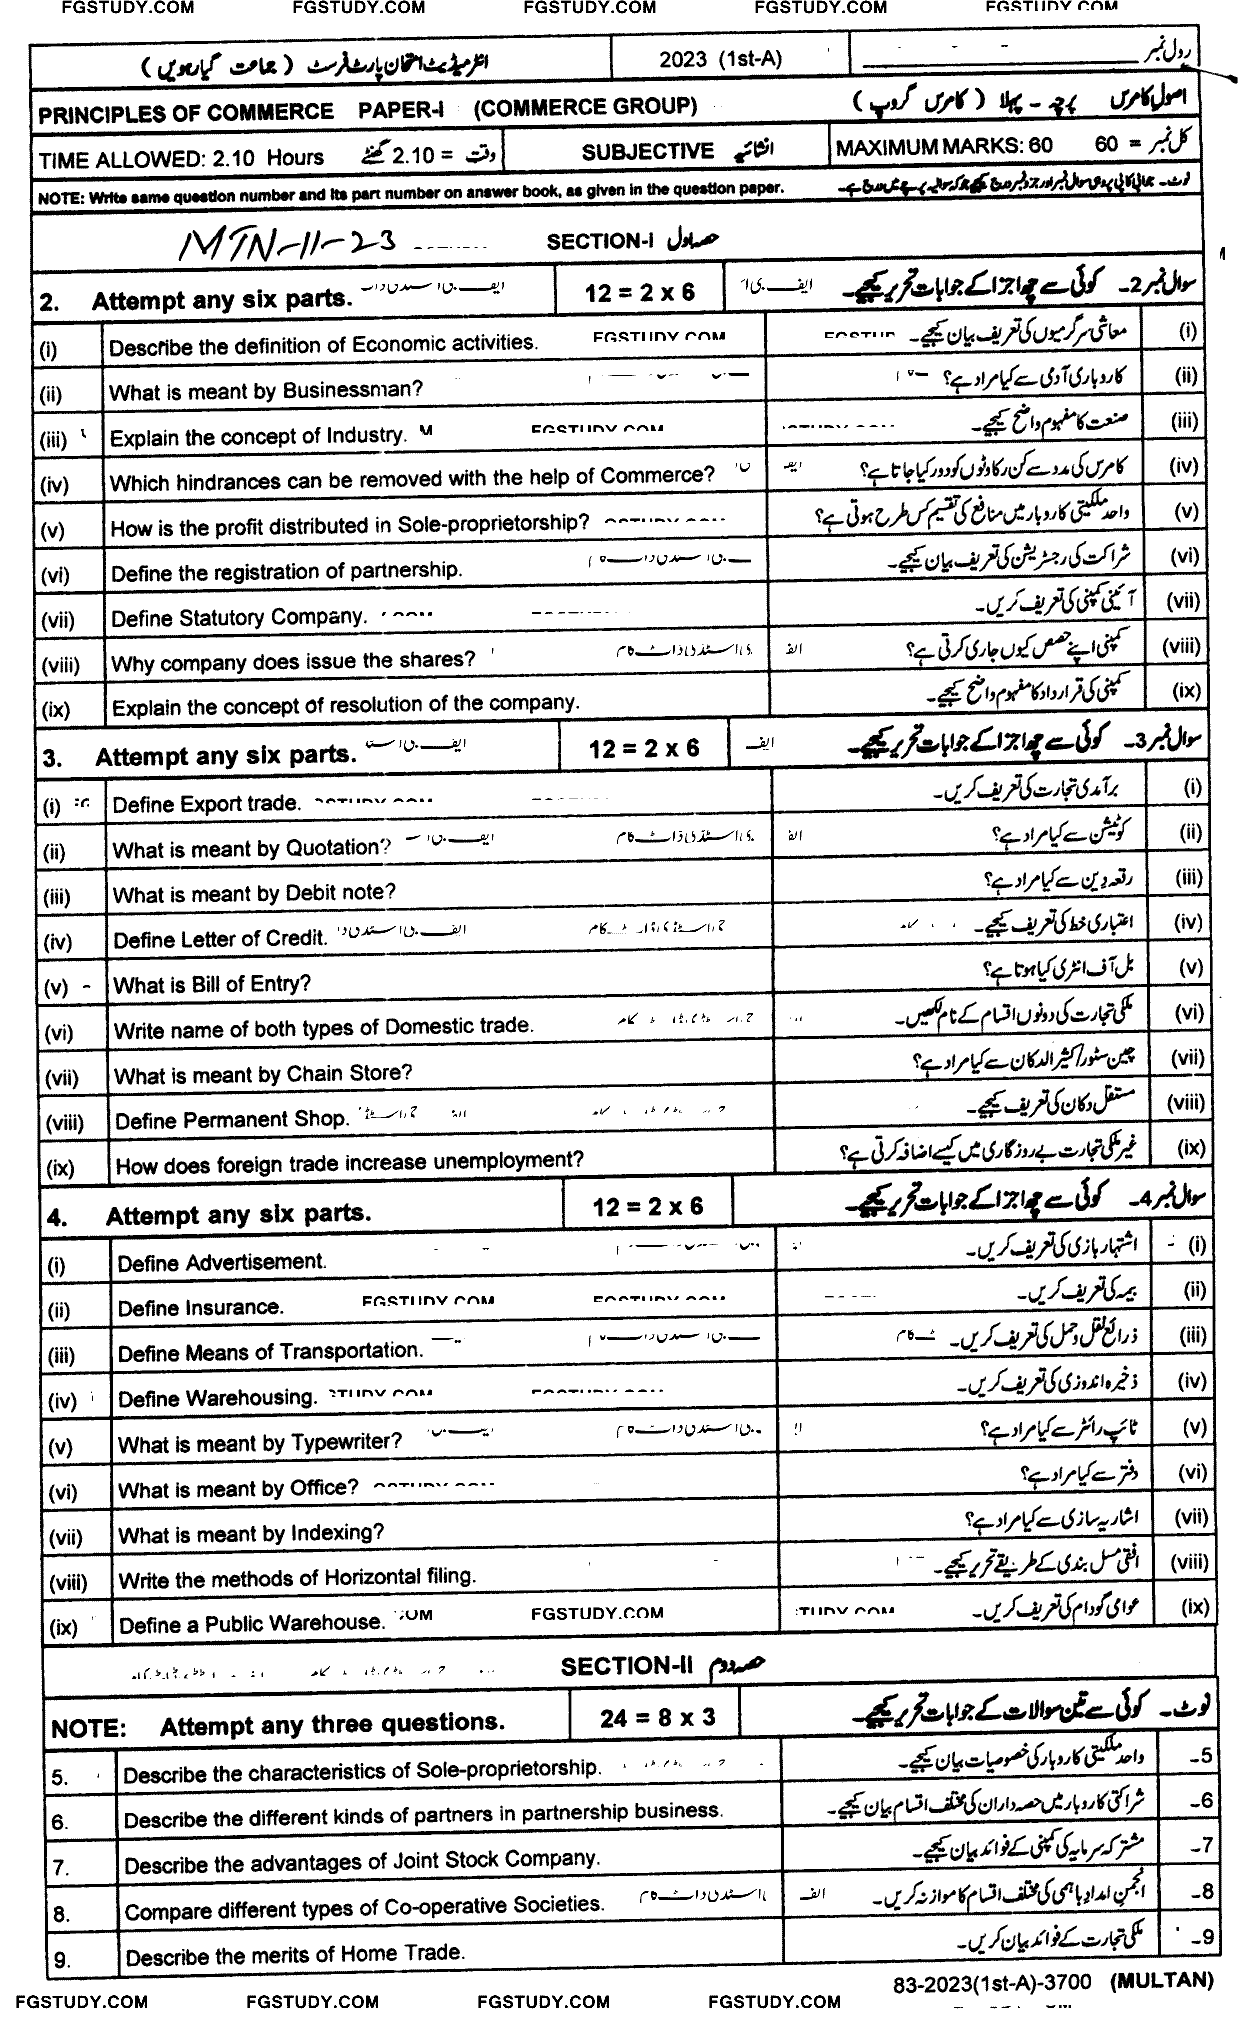 FGSTUDY.COM FGSTUDY.COM FGSTUDY.COM FGSTUDY.COM FGSTUDY.COM
انٹرمیڈیٹ امتحان پارٹ فرسٹ ( جماعت گیارہویں ) 2023 (1st-A) رول نمبر
PRINCIPLES OF COMMERCE PAPER-I (COMMERCE GROUP) اصول کامرس پرچہ - پہلا ( کامرس گروپ )
TIME ALLOWED: 2.10 Hours وقت = 2.10 گھنٹے SUBJECTIVE انشائیہ MAXIMUM MARKS: 60 کل نمبر = 60
NOTE: Write same question number and its part number on answer book, as given in the question paper.
MTN-11-23 SECTION-I حصہ اول
2. Attempt any six parts. 12 = 2 x 6 سوال نمبر 2۔ کوئی سے چھ اجزا کے جوابات تحریر کیجیے۔
(i) Describe the definition of Economic activities. FGSTUDY.COM معاشی سرگرمیوں کی تعریف بیان کیجیے۔ (i)
(ii) What is meant by Businessman? کاروباری آدمی سے کیا مراد ہے؟ (ii)
(iii) Explain the concept of Industry. FGSTUDY.COM صنعت کا مفہوم واضح کیجیے۔ (iii)
(iv) Which hindrances can be removed with the help of Commerce? کامرس کی مدد سے کن رکاوٹوں کو دور کیا جاتا ہے؟ (iv)
(v) How is the profit distributed in Sole-proprietorship? واحد ملکیتی کاروبار میں منافع کی تقسیم کس طرح ہوتی ہے؟ (v)
(vi) Define the registration of partnership. شراکت کی رجسٹریشن کی تعریف بیان کیجیے۔ (vi)
(vii) Define Statutory Company. آئینی کمپنی کی تعریف کریں۔ (vii)
(viii) Why company does issue the shares? کمپنی اپنے حصص کیوں جاری کرتی ہے؟ (viii)
(ix) Explain the concept of resolution of the company. کمپنی کی قرارداد کا مفہوم واضح کیجیے۔ (ix)
3. Attempt any six parts. 12 = 2 x 6 سوال نمبر 3۔ کوئی سے چھ اجزا کے جوابات تحریر کیجیے۔
(i) Define Export trade. برآمدی تجارت کی تعریف کریں۔ (i)
(ii) What is meant by Quotation? کوٹیشن سے کیا مراد ہے؟ (ii)
(iii) What is meant by Debit note? رقعہ دین سے کیا مراد ہے؟ (iii)
(iv) Define Letter of Credit. اعتباری خط کی تعریف کیجیے۔ (iv)
(v) What is Bill of Entry? بل آف انٹری کیا ہوتا ہے؟ (v)
(vi) Write name of both types of Domestic trade. ملکی تجارت کی دونوں اقسام کے نام لکھیں۔ (vi)
(vii) What is meant by Chain Store? چین سٹور/کثیر الدکان سے کیا مراد ہے؟ (vii)
(viii) Define Permanent Shop. مستقل دکان کی تعریف کیجیے۔ (viii)
(ix) How does foreign trade increase unemployment? غیر ملکی تجارت بے روزگاری میں کیسے اضافہ کرتی ہے؟ (ix)
4. Attempt any six parts. 12 = 2 x 6 سوال نمبر 4۔ کوئی سے چھ اجزا کے جوابات تحریر کیجیے۔
(i) Define Advertisement. اشتہار بازی کی تعریف کریں۔ (i)
(ii) Define Insurance. FGSTUDY.COM FGSTUDY.COM بیمہ کی تعریف کریں۔ (ii)
(iii) Define Means of Transportation. ذرائع نقل و حمل کی تعریف کریں۔ (iii)
(iv) Define Warehousing. ذخیرہ اندوزی کی تعریف کریں۔ (iv)
(v) What is meant by Typewriter? ٹائپ رائٹر سے کیا مراد ہے؟ (v)
(vi) What is meant by Office? دفتر سے کیا مراد ہے؟ (vi)
(vii) What is meant by Indexing? اشاریہ سازی سے کیا مراد ہے؟ (vii)
(viii) Write the methods of Horizontal filing. افقی مسل بندی کے طریقے تحریر کیجیے۔ (viii)
(ix) Define a Public Warehouse. FGSTUDY.COM عوامی گودام کی تعریف کریں۔ (ix)
SECTION-II حصہ دوم
NOTE: Attempt any three questions. 24 = 8 x 3 نوٹ۔ کوئی سے تین سوالات کے جوابات تحریر کیجیے۔
5. Describe the characteristics of Sole-proprietorship. واحد ملکیتی کاروبار کی خصوصیات بیان کیجیے۔ 5۔
6. Describe the different kinds of partners in partnership business. شراکتی کاروبار میں حصہ داران کی مختلف اقسام بیان کیجیے۔ 6۔
7. Describe the advantages of Joint Stock Company. مشترکہ سرمایہ کی کمپنی کے فوائد بیان کیجیے۔ 7۔
8. Compare different types of Co-operative Societies. انجمن امداد باہمی کی مختلف اقسام کا موازنہ کریں۔ 8۔
9. Describe the merits of Home Trade. ملکی تجارت کے فوائد بیان کریں۔ 9۔
83-2023(1st-A)-3700 (MULTAN)
FGSTUDY.COM FGSTUDY.COM FGSTUDY.COM FGSTUDY.COM